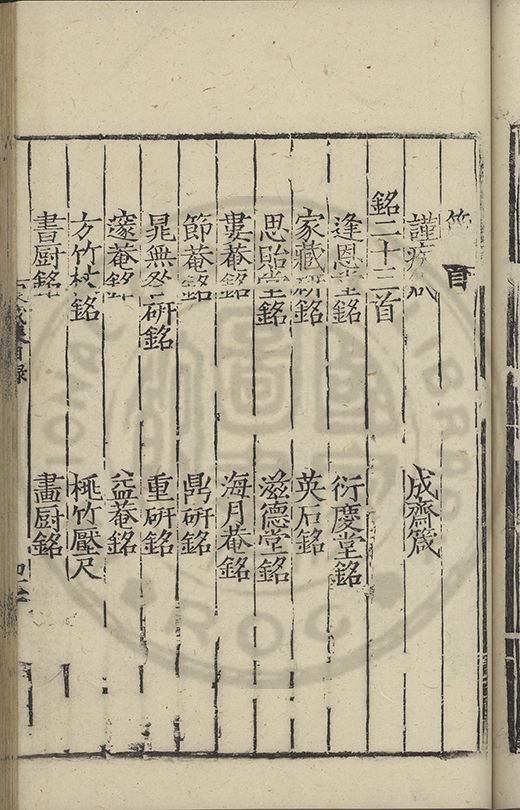 目
謹 成齋箴
銘二十三首
逢恩堂銘 衍慶堂銘
家藏研銘 英石銘
思貽堂銘 滋德堂銘
婁菴銘 海月菴銘
節菴銘 鼎研銘
晁無咎研銘 重研銘
邃菴銘 益菴銘
方竹杖銘 桃竹壓尺
書厨銘 畫厨銘
家藏集目錄